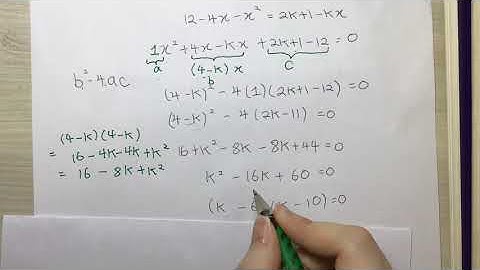 12-4x-x² = 2k+1-kx
1x² + 4x-kx + 2k+1-12 = 0
a (4-k)x c
b
b²-4ac
(4-k)² - 4(1)(2k+1-12) = 0
(4-k)² - 4(2k-11) = 0
(4-k)(4-k)
= 16-4k-4k+k² 16+k²-8k-8k+44 = 0
= 16-8k+k²
k² - 16k + 60 = 0
(k - k - 10) = 0